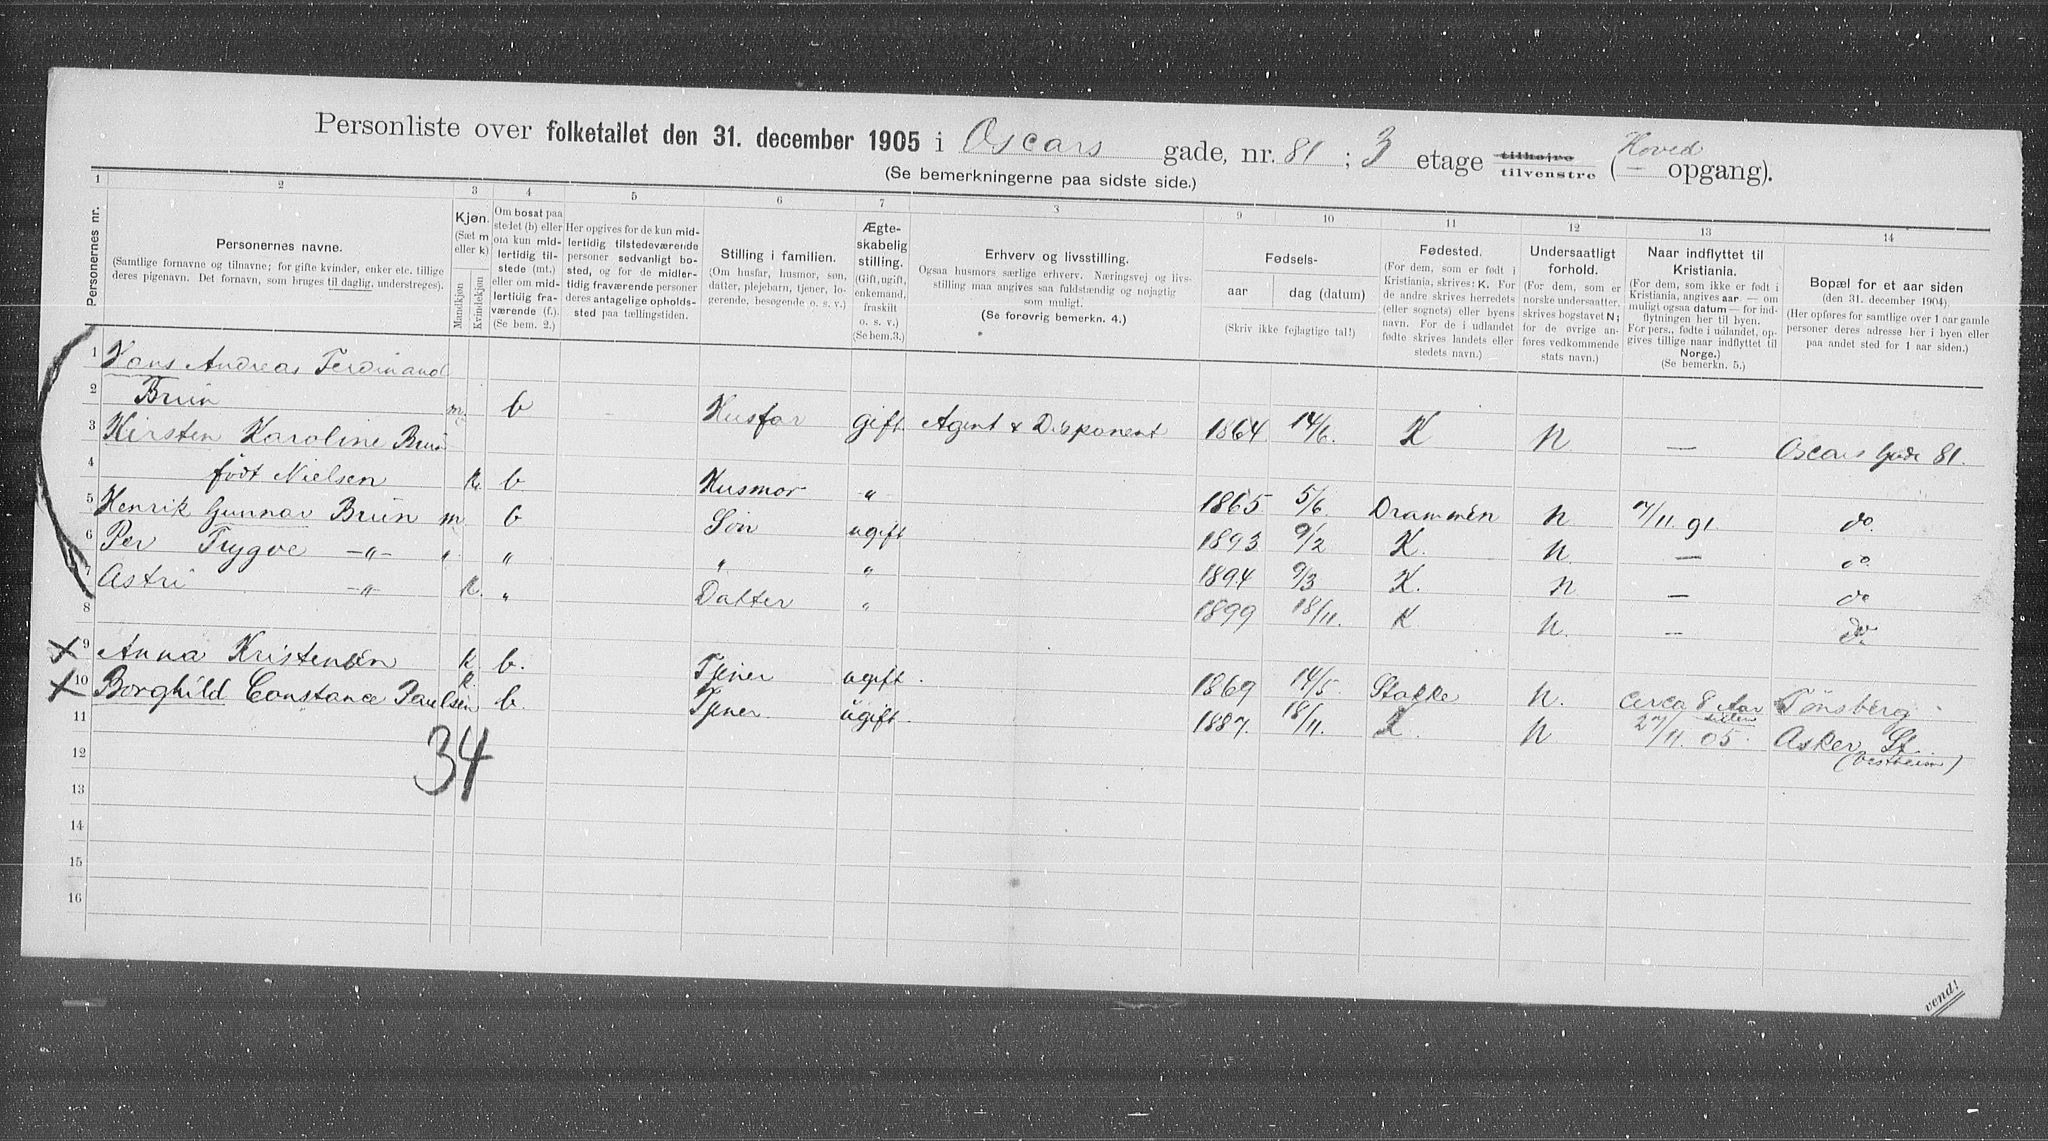 Personliste over folketallet den 31. december 1905 i Oscars gade, nr. 81 ; 3 etage tilhøjre tilvenstre (Hoved opgang).
(Se bemerkningerne paa sidste side.)
1 2 3 4 5 6 7 3 9 10 11 12 13 14
Personernes nr.
Personernes navne.
(Samtlige fornavne og tilnavne; for gifte kvinder, enker etc. tillige
deres pigenavn. Det fornavn, som bruges til daglig, understreges).
Kjøn.
(Sæt m
eller k)
Mandkjøn
Kvindekjøn
Om bosat paa
stedet (b) eller
om kun mid-
lertidig til-
stede (mt.)
eller om mid-
lertidig fra-
værende (f.).
(Se bem. 2.)
Her opgives for de kun mid-
lertidig tilstedeværende
personer sedvanligt bo-
sted, og for de midler-
tidig fraværende personer
deres antagelige opholds-
sted paa tællingstiden.
Stilling i familien.
(Om husfar, husmor, søn,
datter, plejebarn, tjener, lo-
gerende, besøgende o. s. v.)
Ægte-
skabelig
stilling.
(Gift, ugift,
enkemand,
fraskilt
o. s. v.)
(Se bem.3.)
Erhverv og livsstilling.
Ogsaa husmors særlige erhverv. Næringsvej og livs-
stilling maa angives saa fuldstændig og nøjagtig
som muligt.
(Se forøvrig bemerkn. 4.)
Fødsels-
aar
dag (datum)
(Skriv ikke fejlagtige tal!)
Fødested.
(For dem, som er født i
Kristiania, skrives: K. For
de andre skrives herredets
(eller sognets) eller byens
navn. For de i udlandet
fødte skrives landets eller
stedets navn.)
Undersaatligt
forhold.
(For dem, som er
norske undersaatter,
skrives bogstavet N;
for de øvrige an-
føres vedkommende
stats navn.)
Naar indflyttet til
Kristiania.
(For dem, som ikke er født i
Kristiania, angives aar — om
muligt ogsaa datum — for ind-
flytningen her til byen.
For pers., fødte i udlandet, op-
gives tillige naar indflyttet til
Norge.)
(Se bemerkn. 5.)
Bopæl for et aar siden
(den 31. december 1904).
(Her opføres for samtlige over 1 aar gamle
personer deres adresse her i byen eller
paa andet sted for 1 aar siden.)
1 Hans Andreas Ferdinand
2 Bruun m. b Husfar gift Agent & Disponent 1864 14/6. K N. — Oscars Gade 81.
3 Kirsten Karoline Bruun
4 født Nielsen k. b Husmor " 1865 5/6 Drammen N 7/11 91 do.
5 Henrik Gunnar Bruun m b Søn ugift 1893 9/2 K. N. — do.
6 Per Trygve —"— " " " " 1894 9/3 K. N — do
7 Astri —"— k. " Datter " 1899 18/11. K N. — do.
8
9 Anna Kristensen k b. Tjener ugift. 1869 14/5 Stokke N. circa 8 Aar siden Tønsberg
10 Borghild Constance Paulsen k b. Tjener ugift. 1887. 18/11. K. N 27/11. 05. Asker St.
(Vestheim)
11
34
12
13
14
15
16
vend!